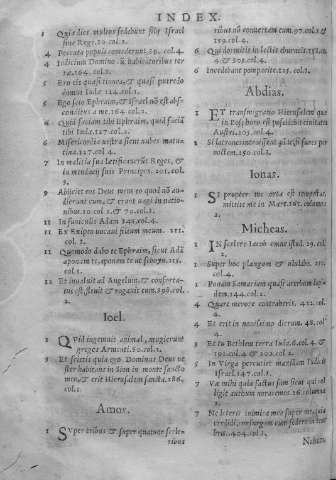 INDEX.
1 Quia dies multos sedebunt filij Israel
sine Rege. 20. col. 1.
4 Peccata populi comederunt, 56. col. 4.
4 Iudicium Domino cū habitatoribus ter
ræ. 164. col. 1.
5 Ero eis quasi tinea, & quasi putredo
domui Iudæ. 124. col. 1.
5 Ego scio Ephraim, & Israel nō est abs-
conditus a me. 164. col. 3.
6 Quid faciam tibi Ephraim, quid faciā
tibi Iuda. 127. col. 2.
6 Misericordia vestra sicut nubes matu-
tina. 127. col. 4.
7 In malitia sua lætificaverūt Reges, &
in mendacijs suis Principes. 101. col.
3.
9 Abijciet eos Deus meus eo quod au-
dierunt eum, & erunt vagi in natio-
nibus. 10 col. 1. & 70. col. 1.
11 In funiculis Adam 142. col. 4.
11 Ex Ægypto vocavi filium meum.
col. 1.
11 Quomodo dabo te Ephraim, sicut Adā
ponam te, aponam te ut
col. 1.
12 Et invaluit ad Angelum, & conforta-
tus est, flevit & rogavit eum. 398. col.
2.
Ioel.
1 Quid ingemuit animal, mugierunt
greges Armenti. 50. col. 1.
3 Et scietis quia ego Dominus Deus ve-
ster habitans in Sion in monte sancto
meo, & erit Hierusalem sancta. 186.
col. 1.
Amos.
1 Super tribus & super quatuor sceleri-
ribus
ribus nō convertam eum. 97. col. 1 &
159. col. 4.
6 Qui dormitis in lectis eburneis
4 & 305. col. 4.
6 Inredebant pompatice. 125. col. 3.
Abdias.
1 ET transmigratio Hierusalem quæ
in Bosphoro est possidebit civitates
Austri. 105. col. 4.
1 Si latrones introissent ad te si fures per
noctem. 150. col. 1.
Ionas.
1 SI propter me orta est tempestas,
mittite me in Mare. 108.
2.
Micheas.
1 IN scelere Iacob omne istud. 19. col.
1 Super hoc plangam & ululabo.
col. 4.
1 Ponam Samariam quasi acervum lapi-
dum. 144. col. 1.
4 Quare mœrore contraheris. 412. col.
4.
4 Et erit in novissimo dierum. 48. col.
4.
5 Et tu Bethleem terra Iuda. 6. col. 4 &
192. col. 4 & 202. col. 1.
5 In Virga percutiet maxillam Iudicis
Israel. 147. col. 1.
7 Væ mihi quia factus sum sicut qui col
ligit autumno racemos. 26.
2.
7 Ne læteris inimica mea super me, quia
cecidi, consurgam cum sedero in tene-
bris. 404. col. 1.
Nahum